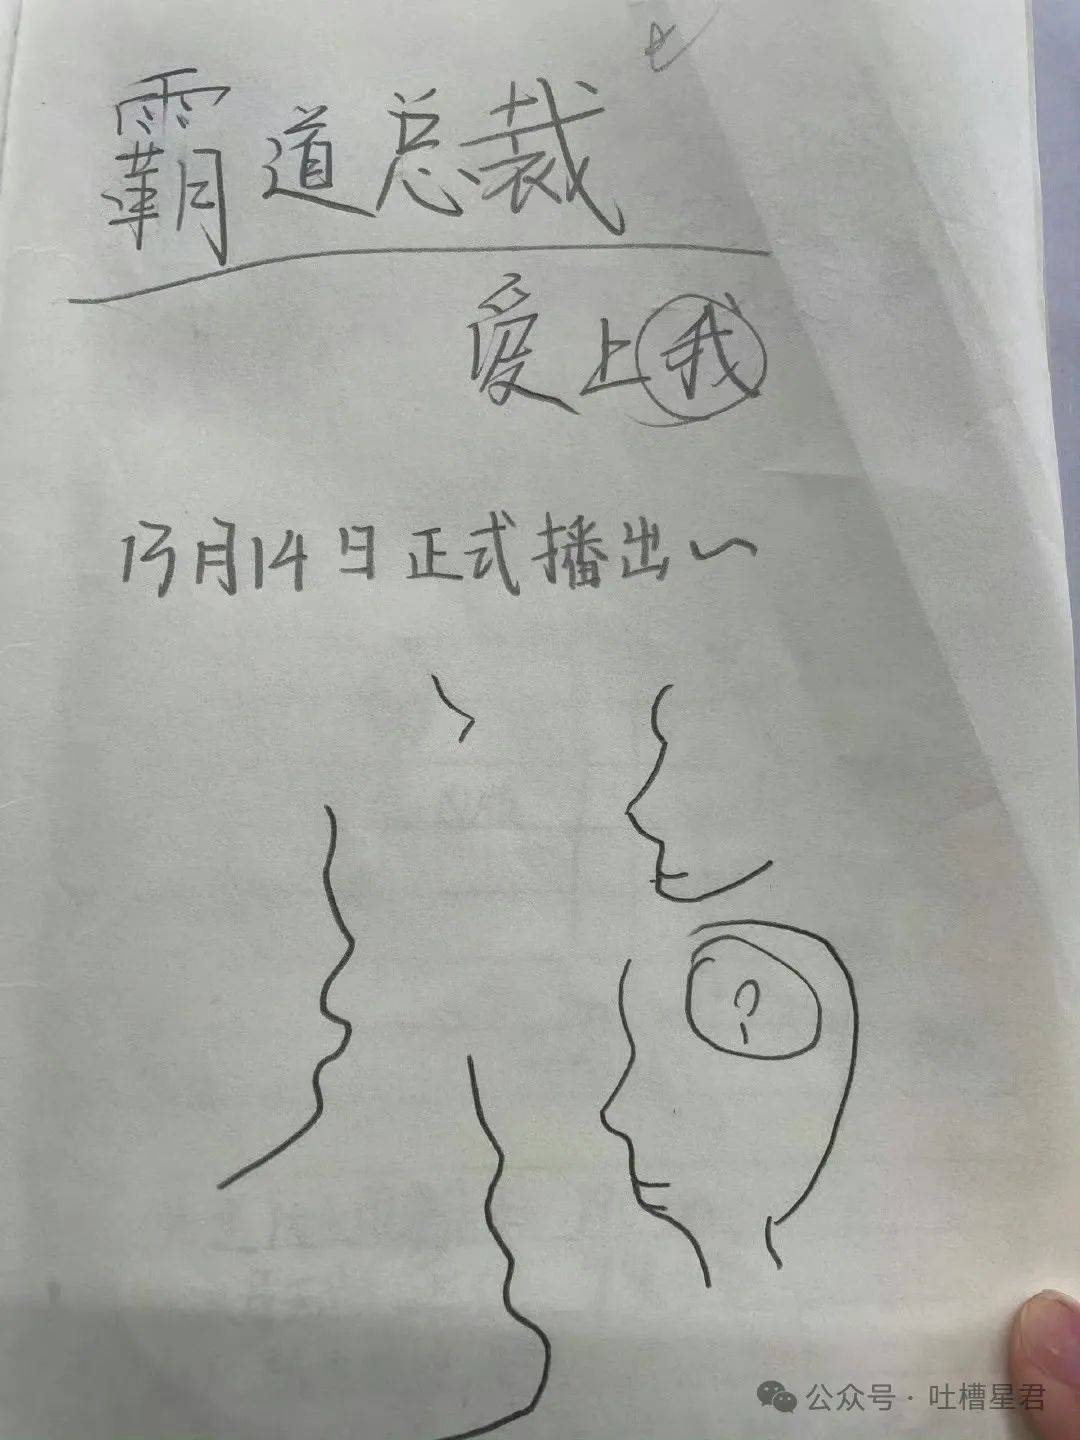 霸道总裁
爱上我
13月14日正式播出~
?
公众号·吐槽星君